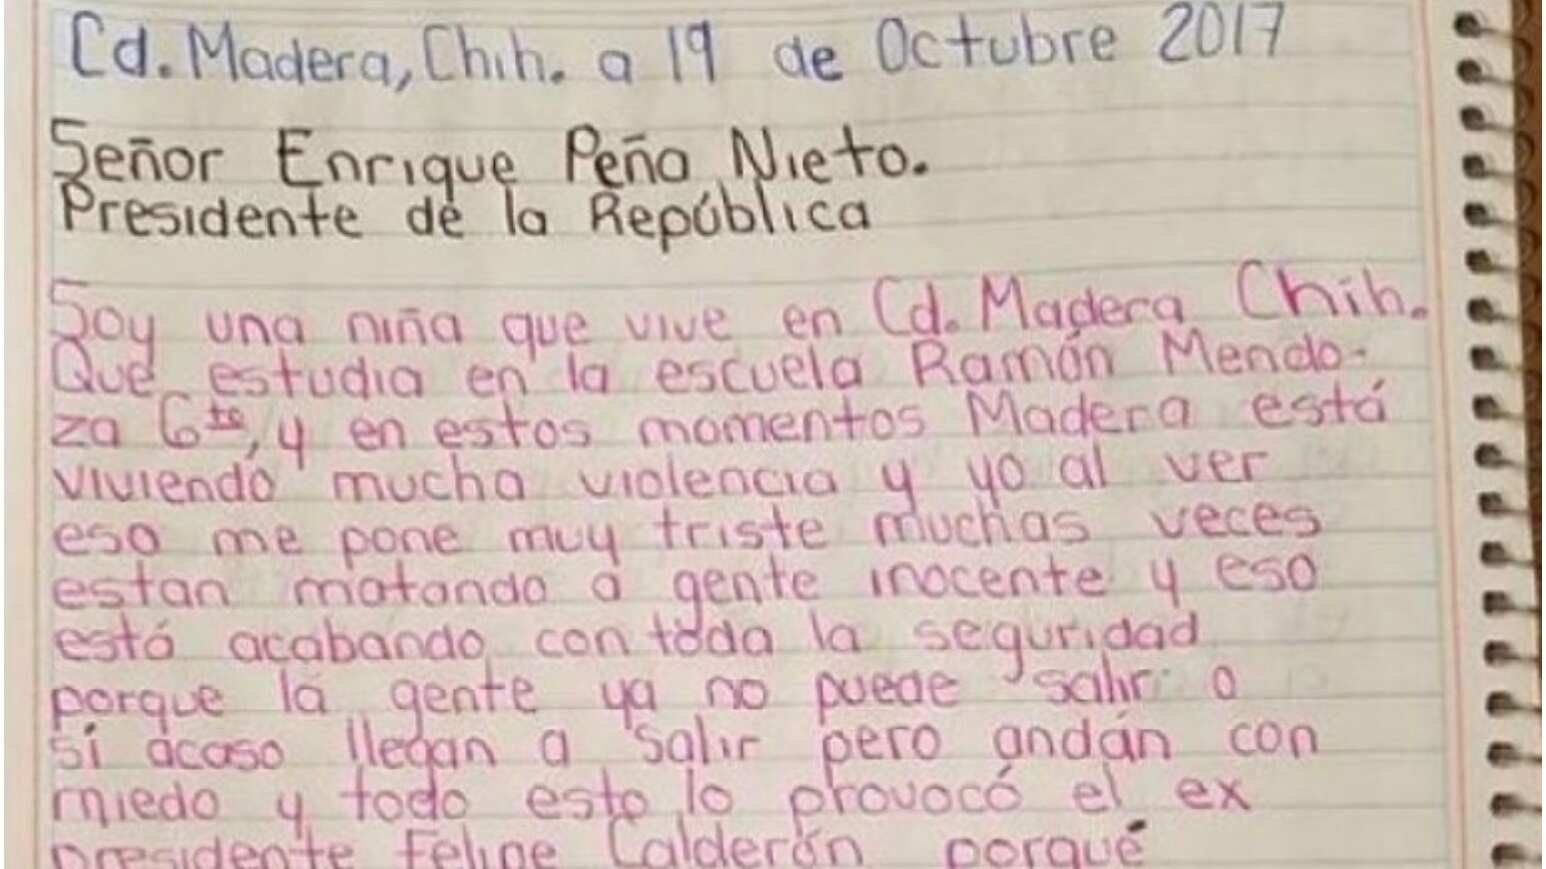 Cd. Madera, Chih. a 19 de Octubre 2017
Señor Enrique Peña Nieto.
Presidente de la República
Soy una niña que vive en Cd. Madera Chih.
Que estudia en la escuela Ramón Mendo-
za 6to, y en estos momentos Madera está
viviendo mucha violencia y yo al ver
eso me pone muy triste muchas veces
estan matando a gente inocente y eso
está acabando con toda la seguridad
porque la gente ya no puede salir o
si acaso llegan a salir pero andán con
miedo y todo esto lo provocó el ex
presidente Felipe Calderón porqué